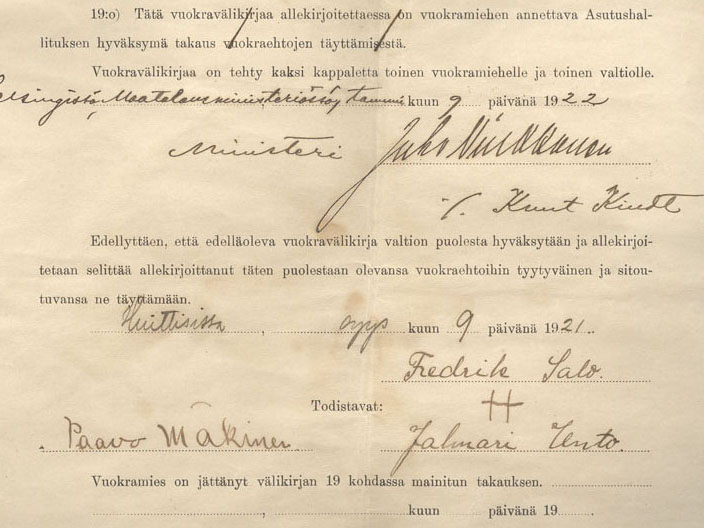 19:o) Tätä vuokravälikirjaa allekirjoitettaessa on vuokramiehen annettava Asutushal-
lituksen hyväksymä takaus vuokraehtojen täyttämisestä.
Vuokravälikirjaa on tehty kaksi kappaletta toinen vuokramiehelle ja toinen valtiolle.
Helsingissä, Maatalousministeriössä, tammi kuun 9 päivänä 1922
Ministeri Juho Niukkanen
/. Knut Kindt
Edellyttäen, että edelläoleva vuokravälikirja valtion puolesta hyväksytään ja allekirjoi-
tetaan selittää allekirjoittanut täten puolestaan olevansa vuokraehtoihin tyytyväinen ja sitou-
tuvansa ne täyttämään.
Huittisissa, syys kuun 9 päivänä 1921.
Fredrik Salo.
Todistavat:
Paavo Mäkinen. Jalmari Unto.
Vuokramies on jättänyt välikirjan 19 kohdassa mainitun takauksen.
, kuun päivänä 19